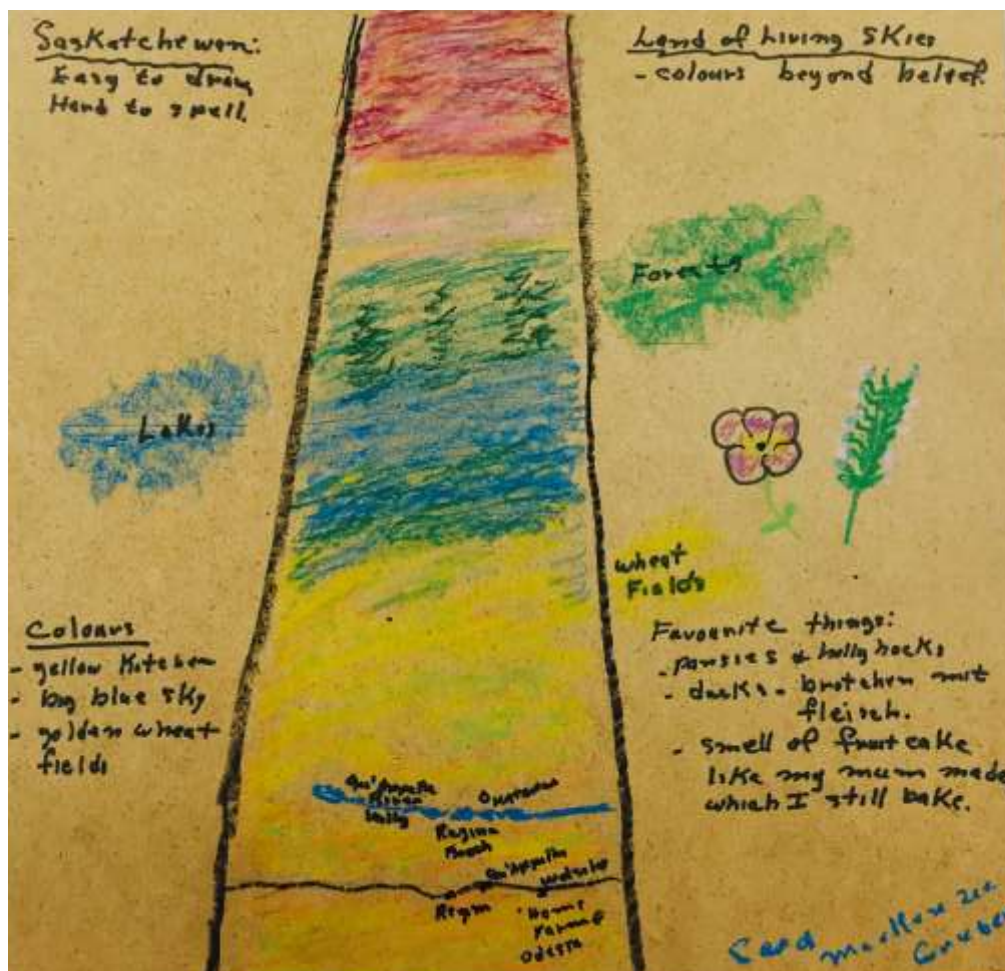 Saskatchewan:
Easy to draw
Hard to spell.
Land of Living Skies
- colours beyond belief.
Forests
Lakes
Wheat
Fields
Colours
- yellow kitchen
- big blue sky
- golden wheat
fields
Favourite things:
- pansies & hollyhocks
- ducks - brotchen mit
fleisch.
- smell of fruitcake
like my mum made
which I still bake.
Qu'Appelle
River
Valley
Katepwa
Regina
Beach
Qu'Appelle
Wolseley
Regina
Home
Farm
Odessa